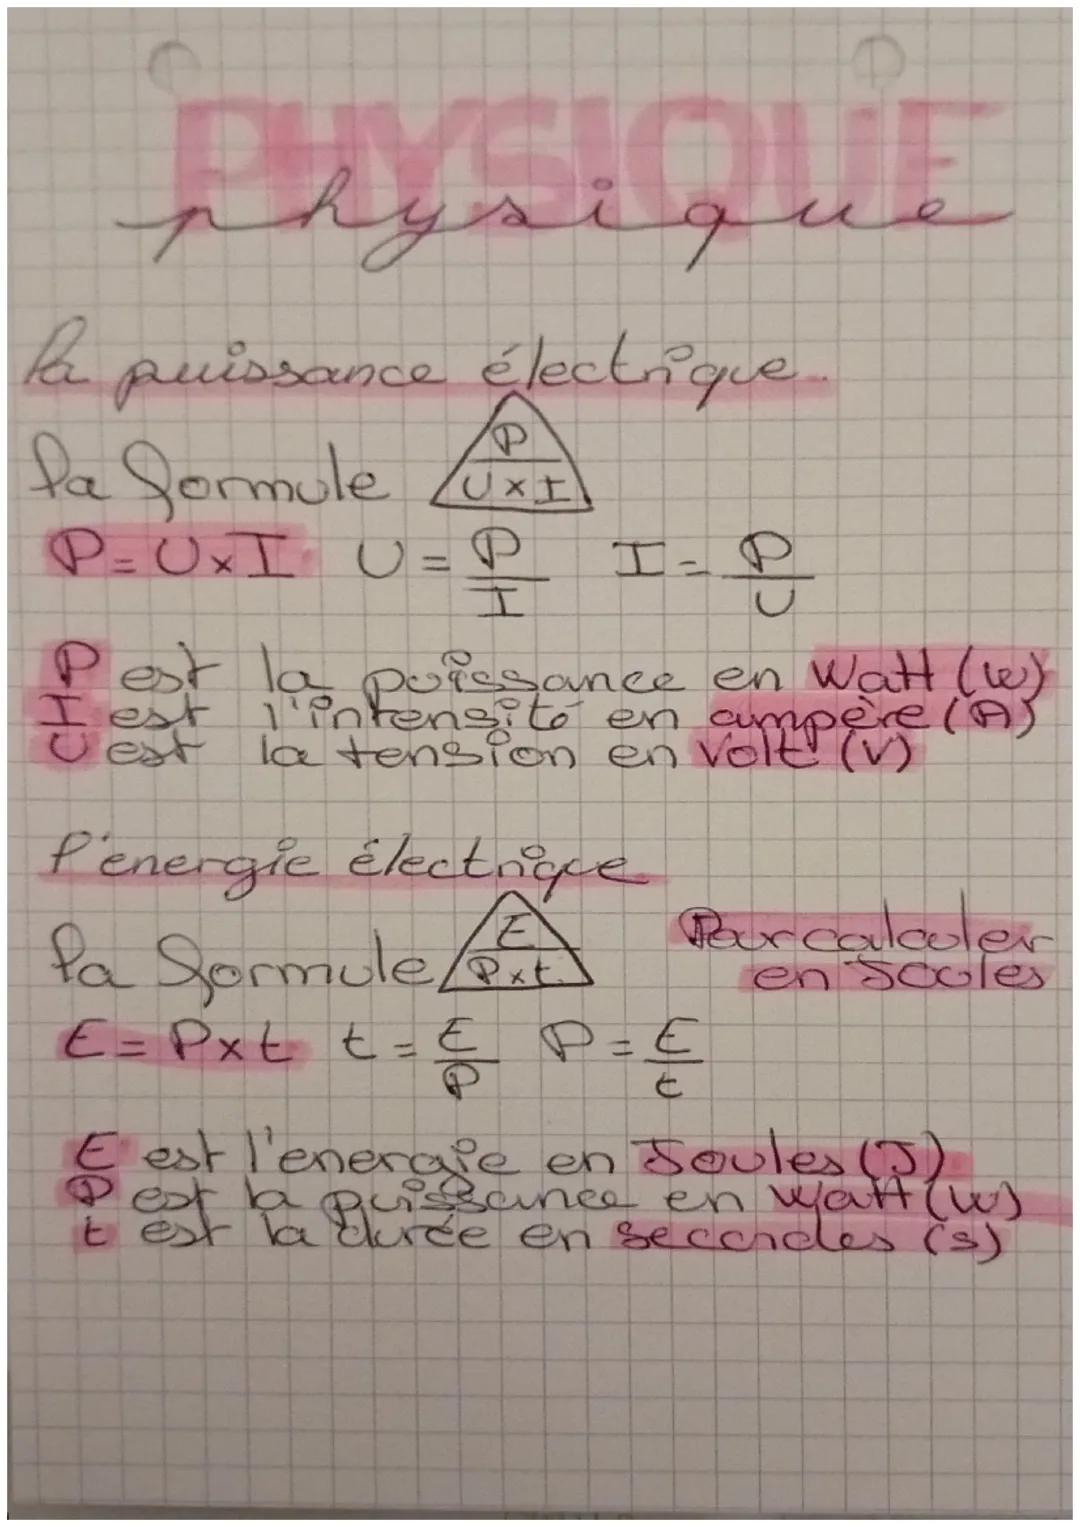 PHYSIQUE
physique
la puissance électrique
la formule P / U x I
P = U x I U = P / I I = P / U
P est la puissance en Watt (W)
I est l'intensité en ampère (A)
U est la tension en Volt (V)
l'énergie électrique
la formule E / P x t.
Pour calculer
en Joules
E = P x t t = E / P P = E / t
E est l'energie en Joules (J)
P est la puissance en Watt (W)
t est la durée en secondes (s)